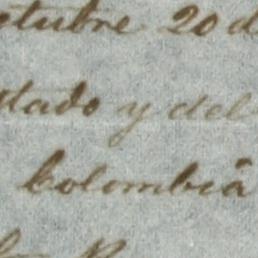 ctubre 20 d
stado y del
Colombia